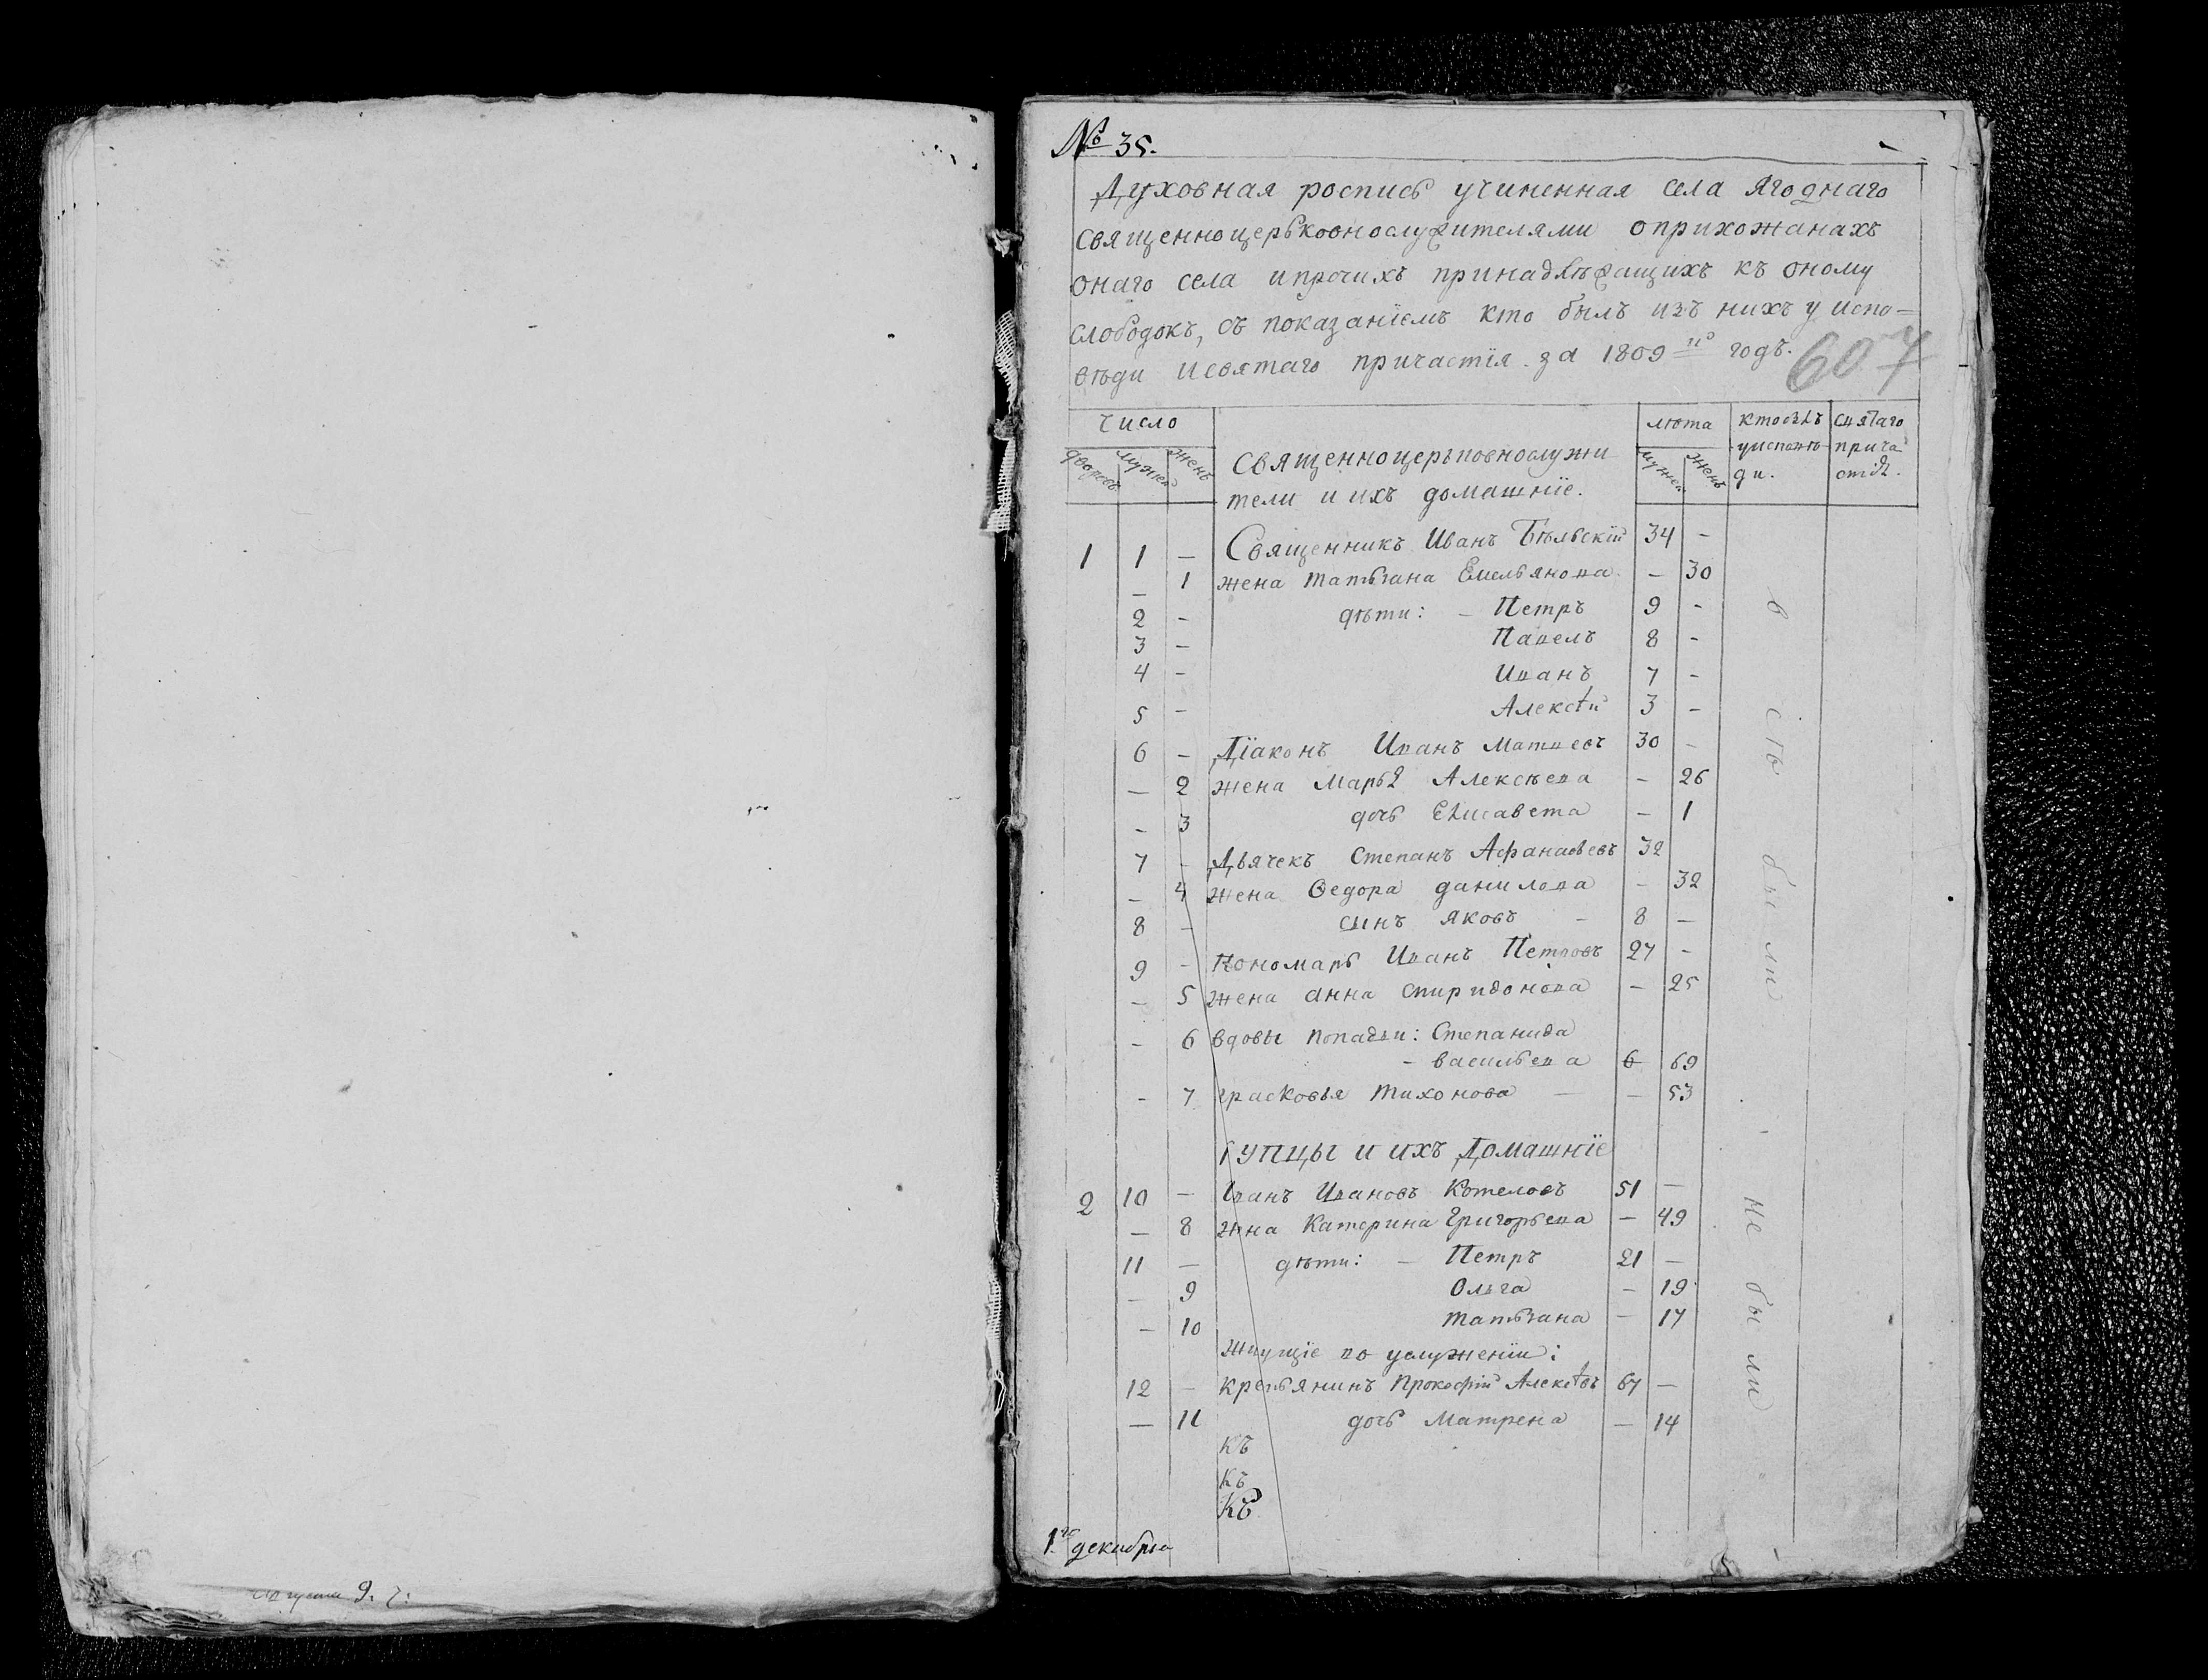 № 35.
Духовная роспись учиненная села Ягоднаго
священноцерьковнослужителями о прихожанахъ
онаго села и прочихъ принадлѣжащихъ къ оному
слободокъ, съ показанїемъ кто былъ изъ нихъ у испо=
вѣди и святаго причастїя за 1809й годъ.
607
Число
лѣта
кто былъ у исповѣди.
святаго причастїя.
дворовъ мужеска женъ
мужеска женъ
Священноцерьковнослужи
тели и ихъ домашнїе.
1 1 — Священникъ Иванъ Бѣльскїй 34 -
— 1 жена татьяна Емельянова — 30
2 - дѣти: — Петръ 9 -
3 - Павелъ 8 -
4 - Иванъ 7 -
5 - Алексѣй 3 -
6 - Дїаконъ Иванъ Матвеевъ 30 -
— 2 жена Марья Алексѣева - 26
- 3 дочь Елисавета - 1
7 - Дьячекъ Степанъ Афанасьевъ 32
- 4 жена Ѳедора данилова - 32
8 - сынъ яковъ - 8 —
9 - Пономарь Иванъ Петровъ 27 -
- 5 жена анна спиридонова - 25
- 6 вдовы попадьи: Степанида
- васильева 6 69
- 7 прасковья тихонова — - 53
Купцы и ихъ Домашнїе
2 10 — Иванъ Ивановъ Котеловъ 51 —
— 8 жна Катерина Григорьева — 49
11 — дѣти: — Петръ 21 —
— 9 Ольга - 19
— 10 татьяна — 17
живущїе во услуженїи:
12 - крестьянинъ Прокофїй Алексѣвъ 67 —
— 11 дочь Матрена — 14
къ
къ
Къ
всѣ были
не были
1го декабря